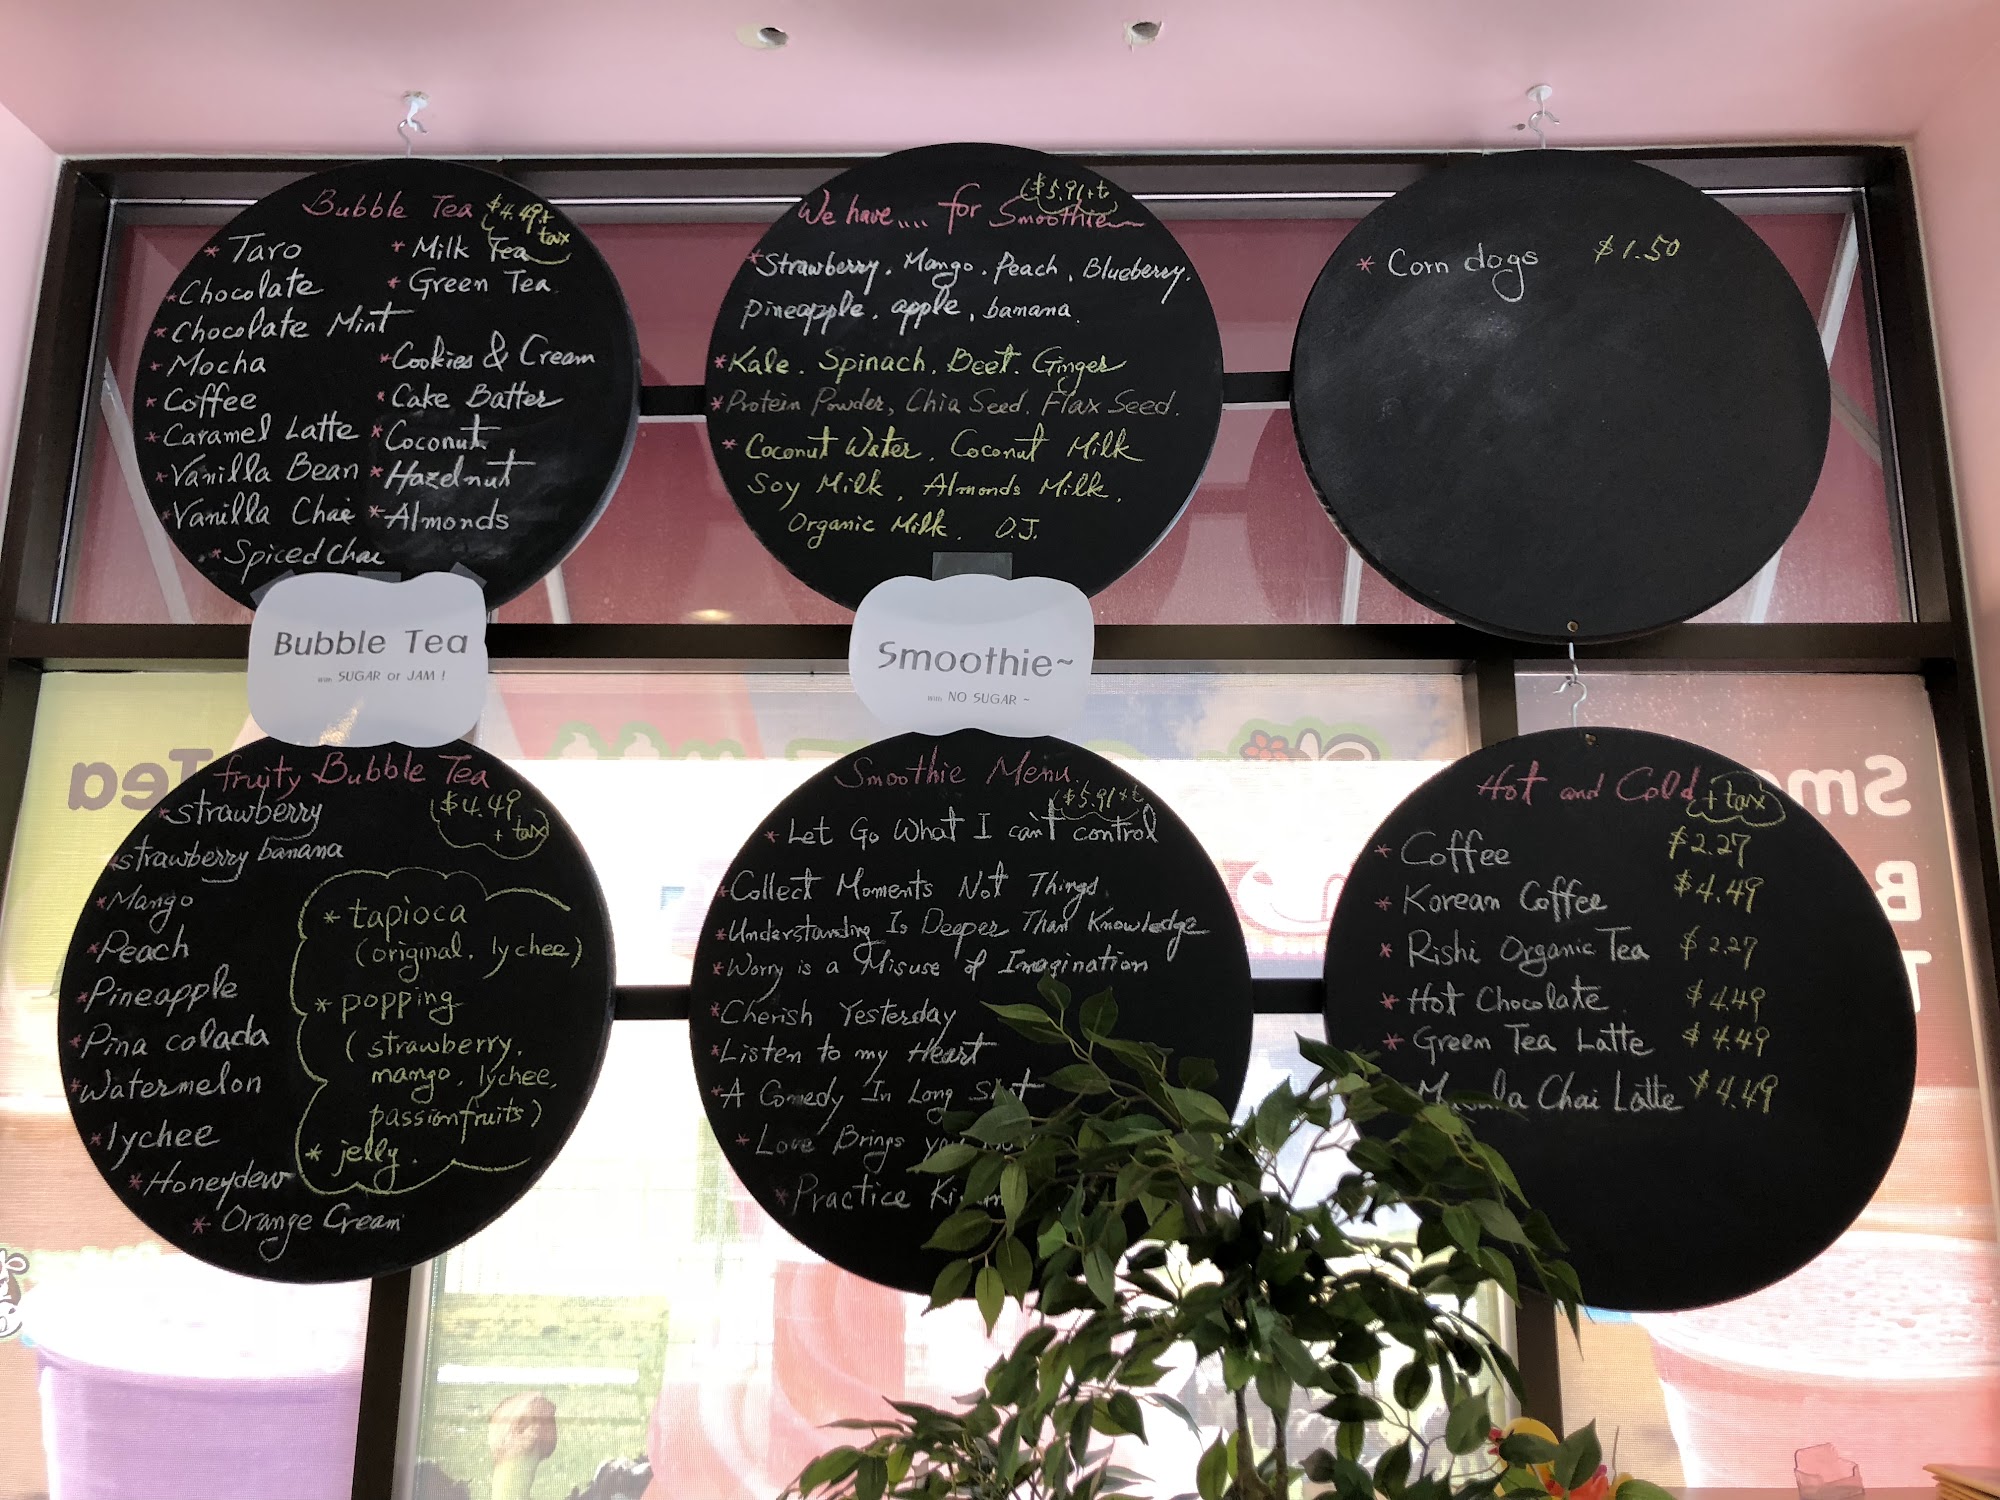 Bubble Tea $4.49 + tax
* Taro
* Chocolate
* Chocolate Mint
* Mocha
* Coffee
* Caramel Latte
* Vanilla Bean
* Vanilla Chai
* Spiced Chai
* Milk Tea
* Green Tea
* Cookies & Cream
* Cake Batter
* Coconut
* Hazelnut
* Almonds
Bubble Tea
with SUGAR or JAM !
fruity Bubble Tea
($4.49 + tax)
* strawberry
* strawberry banana
* Mango
* Peach
* Pineapple
* Pina colada
* Watermelon
* lychee
* Honeydew
* Orange Cream
* tapioca
(original, lychee)
* popping
( strawberry,
mango, lychee,
passionfruits )
* jelly.
We have.... for Smoothie
($5.91+t)
* Strawberry. Mango. Peach, Blueberry,
pineapple, apple, banana.
* Kale. Spinach. Beet. Ginger
* Protein Powder, Chia Seed. Flax Seed.
* Coconut Water, Coconut Milk
Soy Milk, Almonds Milk,
Organic Milk. O.J.
Smoothie~
with NO SUGAR ~
Smoothie Menu.
($5.91+t)
* Let Go What I can't control
* Collect Moments Not Things.
* Understanding Is Deeper Than Knowledge
* Worry is a Misuse of Imagination
* Cherish Yesterday
* Listen to my Heart
* A Comedy In Long
* Love Brings
* Practice
* Corn dogs $1.50
Hot and Cold + tax
* Coffee $2.27
* Korean Coffee $4.49
* Rishi Organic Tea $2.27
* Hot Chocolate. $4.49
* Green Tea Latte $4.49
Masala Chai Latte $4.49
Tea